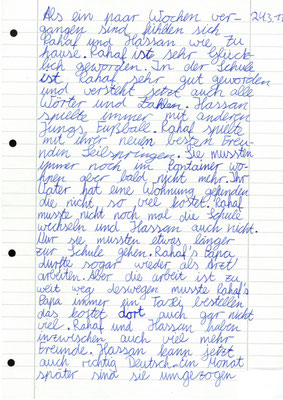 Als ein paar Wochen ver- 24.3.11
gangen sind, fühlen sich
Rahaf und Hassan wie zu
hause. Rahaf ist sehr glück-
lich geworden. In der Schule
ist Rahaf sehr gut geworden
und versteht jetzt auch alle
Wörter und Zahlen. Hassan
spielte immer mit anderen
Jungs Fußball. Rahaf spielte
mit ihrer neuen besten Freu-
ndin Seilspringen. Sie mussten
immer noch im Container wo-
hnen aber bald nicht mehr. Ihr
Vater hat eine Wohnung gefunden
die nicht so viel kostet. Rahaf
musste nicht noch mal die Schule
wechseln und Hassan auch nicht.
Nur sie mussten etwas länger
zur Schule gehen. Rahaf's Papa
durfte sogar wieder als Arzt
arbeiten. Aber die arbeit ist zu
weit weg deswegen musste Rahaf's
Papa immer ein Taxi bestellen
das kostet dort auch gar nicht
viel. Rahaf und Hassan haben
inzwischen auch viel mehr
freunde. Hassan kann jetzt
auch richtig Deutsch. Ein Monat
später sind sie umgezogen